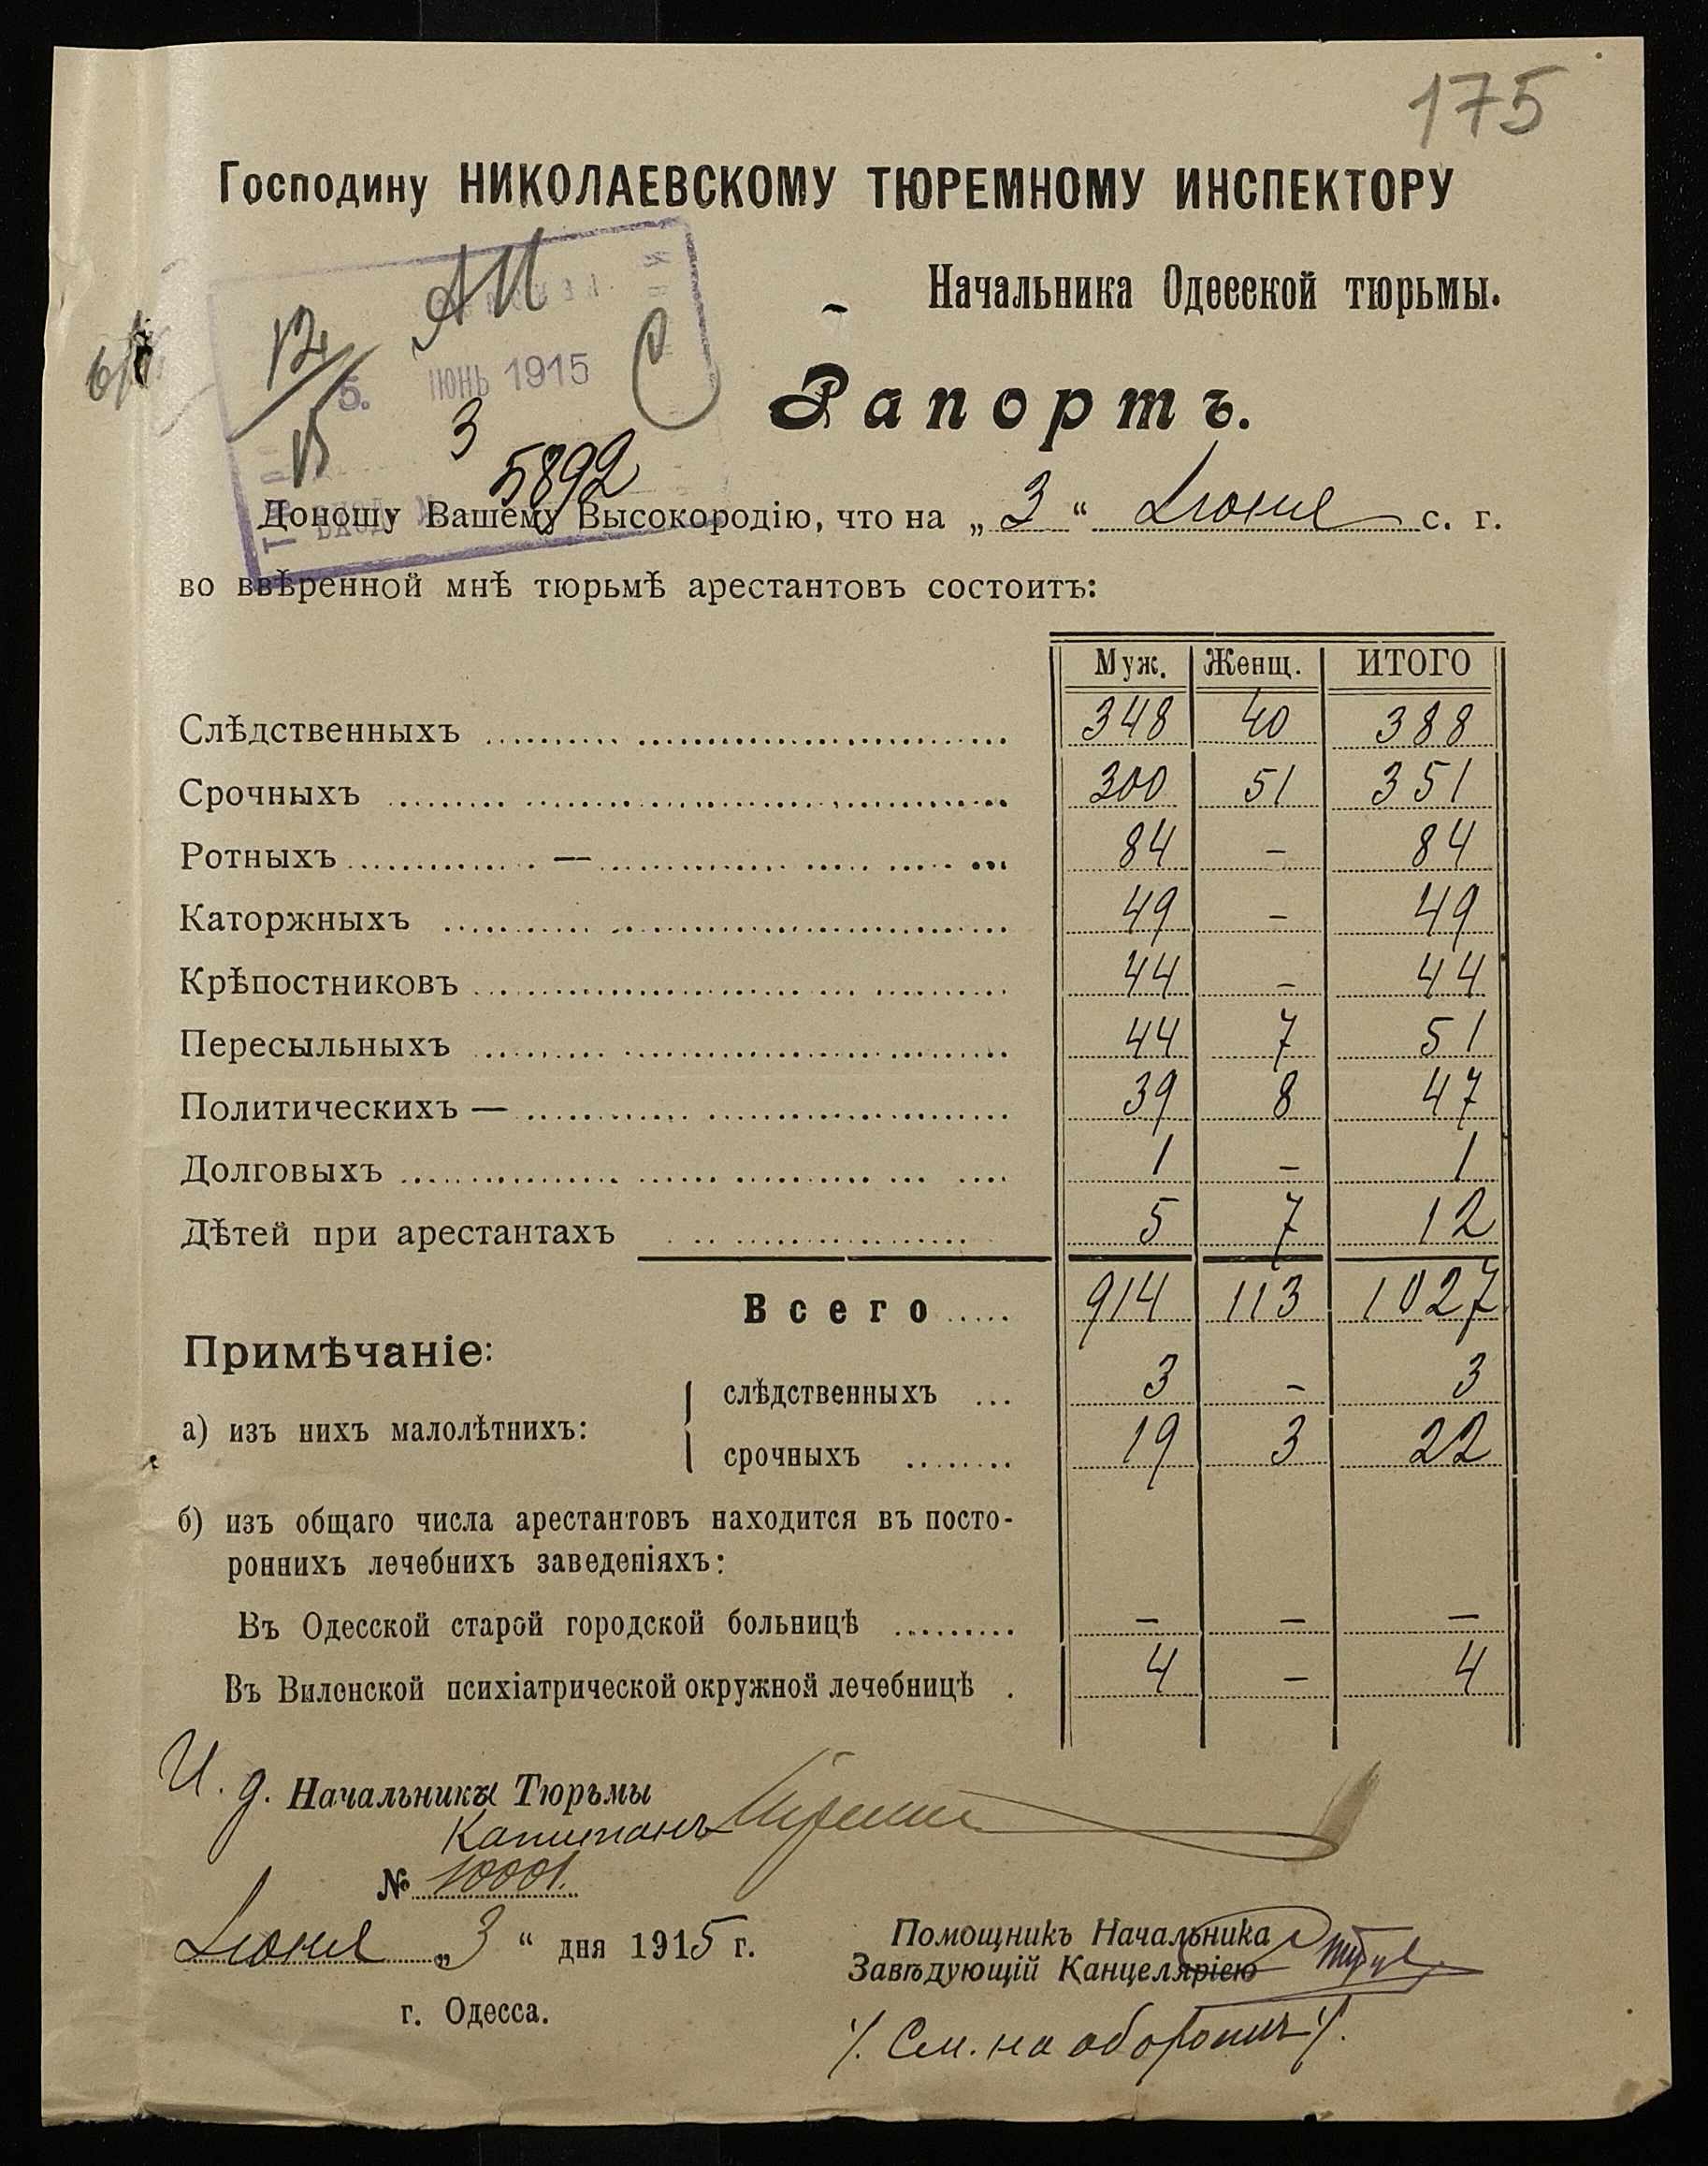 175
Господину НИКОЛАЕВСКОМУ ТЮРЕМНОМУ ИНСПЕКТОРУ
Начальника Одесской тюрьмы.
5. ІЮНЬ 1915
3
5892
Рапортъ.
Доношу Вашему Высокородію, что на „3“ Іюня с. г.
во ввѣренной мнѣ тюрьмѣ арестантовъ состоитъ:
Муж. Женщ. ИТОГО
Слѣдственныхъ 348 40 388
Срочныхъ 300 51 351
Ротныхъ — 84 - 84
Каторжныхъ 49 - 49
Крѣпостниковъ 44 - 44
Пересыльныхъ 44 7 51
Политическихъ — 39 8 47
Долговыхъ 1 - 1
Дѣтей при арестантахъ 5 7 12
Всего 914 113 1027
Примѣчаніе:
а) изъ нихъ малолѣтнихъ: слѣдственныхъ 3 - 3
срочныхъ 19 3 22
б) изъ общаго числа арестантовъ находится въ посто-
роннихъ лечебнихъ заведеніяхъ:
Въ Одесской старой городской больницѣ — — —
Въ Виленской психіатрической окружной лечебницѣ 4 - 4
И. д. Начальника Тюрьмы
Капитанъ
№ 10001.
Іюня „3“ дня 1915 г.
г. Одесса.
Помощникъ Начальника
Завѣдующій Канцеляріею
/. См. на оборотѣ /.